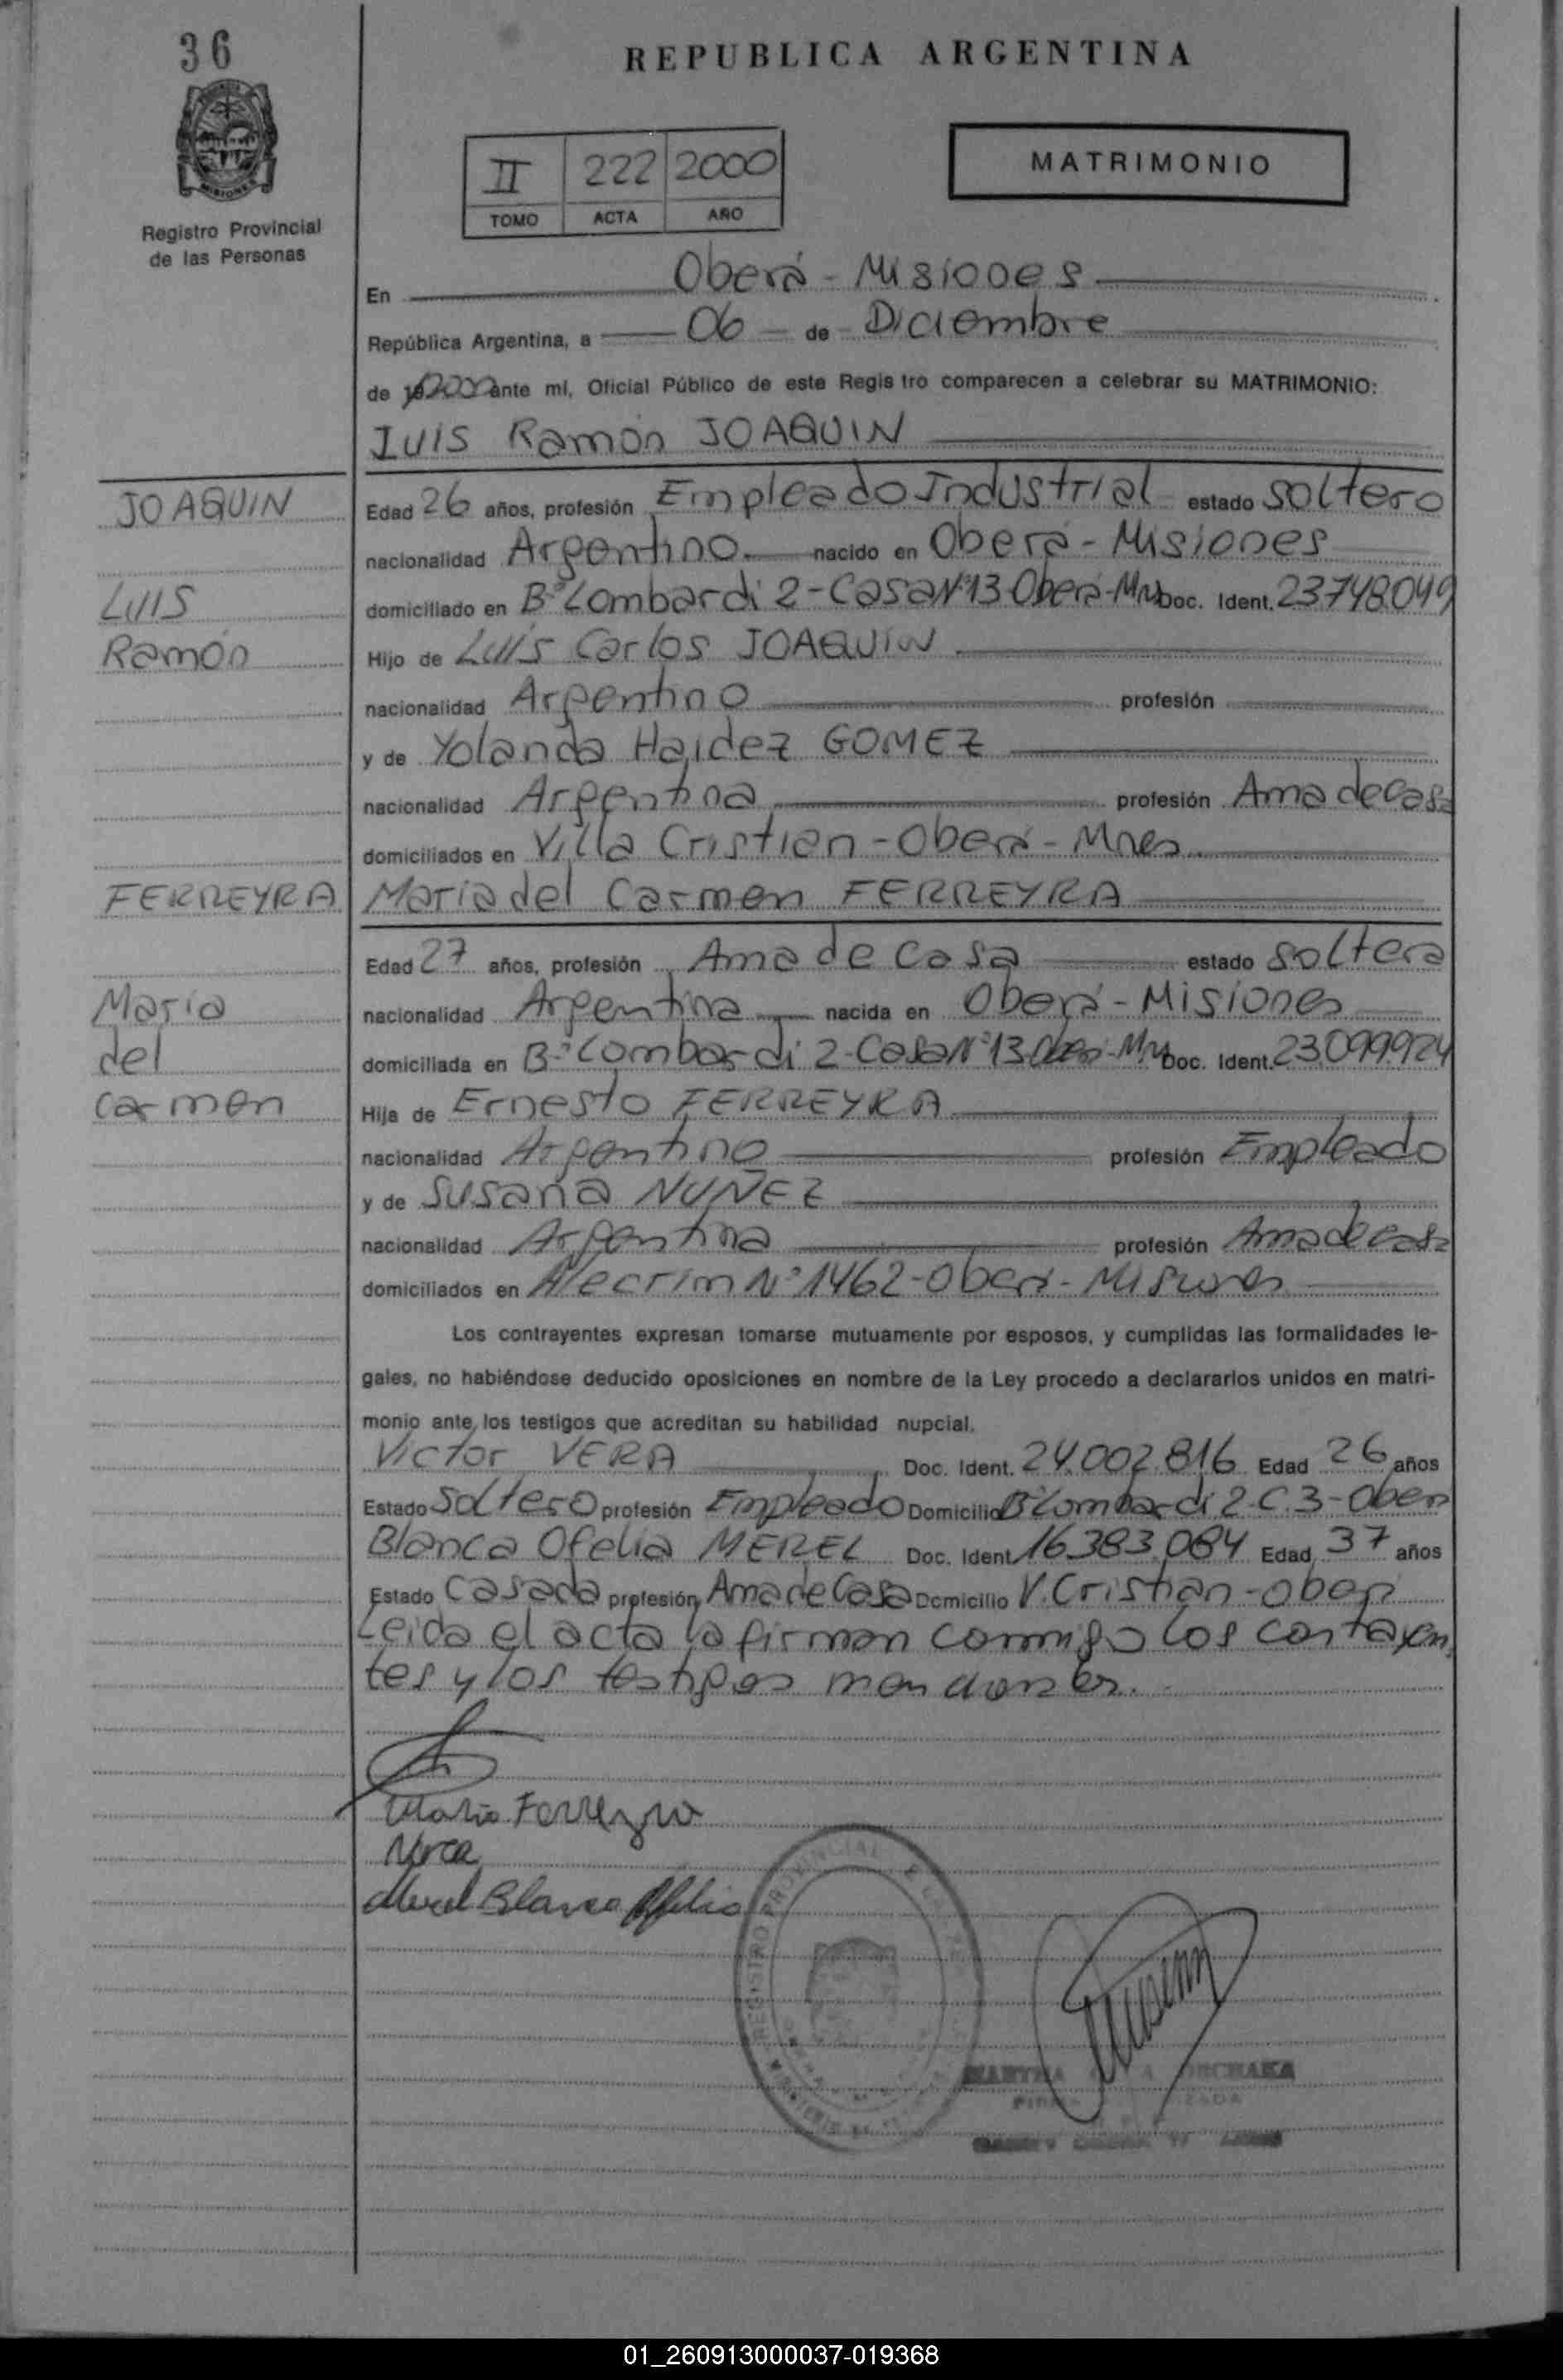 36
REPUBLICA ARGENTINA
MISIONES
Registro Provincial
de las Personas
II 222 2000
TOMO ACTA AÑO
MATRIMONIO
En Oberá - Misiones
República Argentina, a 06 de Diciembre
de 2000 ante mí, Oficial Público de este Registro comparecen a celebrar su MATRIMONIO:
Luis Ramón JOAQUIN
JOAQUIN
Luis
Ramón
Edad 26 años, profesión Empleado Industrial estado soltero
nacionalidad Argentino nacido en Oberá - Misiones
domiciliado en B° Lombardi 2 - Casa N° 13 Oberá - Mnes Doc. Ident. 23748049
Hijo de Luis Carlos JOAQUIN
nacionalidad Argentino profesión
y de Yolanda Haidez GOMEZ
nacionalidad Argentina profesión Ama de casa
domiciliados en Villa Cristian - Oberá - Mnes
FERREYRA
Maria del Carmen FERREYRA
Maria
del
Carmen
Edad 27 años, profesión Ama de casa estado soltera
nacionalidad Argentina nacida en Oberá - Misiones
domiciliada en B° Lombardi 2 - Casa N° 13 Oberá - Mnes Doc. Ident. 23.099.924
Hija de Ernesto FERREYRA
nacionalidad Argentino profesión Empleado
y de Susana NUÑEZ
nacionalidad Argentina profesión Ama de casa
domiciliados en Alecrim N° 1462 - Oberá - Misiones
Los contrayentes expresan tomarse mutuamente por esposos, y cumplidas las formalidades le-
gales, no habiéndose deducido oposiciones en nombre de la Ley procedo a declararlos unidos en matri-
monio ante los testigos que acreditan su habilidad nupcial.
Victor VERA Doc. Ident. 24.002.816 Edad 26 años
Estado Soltero profesión Empleado Domicilio B° Lombardi 2. C. 3 - Oberá
Blanca Ofelia MEREL Doc. Ident. 16.383.084 Edad 37 años
Estado Casada profesión Ama de Casa Domicilio V. Cristian - Oberá
Leida el acta la firman conmigo los contrayen
tes y los testigos mencionados.
Maria Ferreyra
Merel Blanca Ofelia
REGISTRO PROVINCIAL
01_260913000037-019368